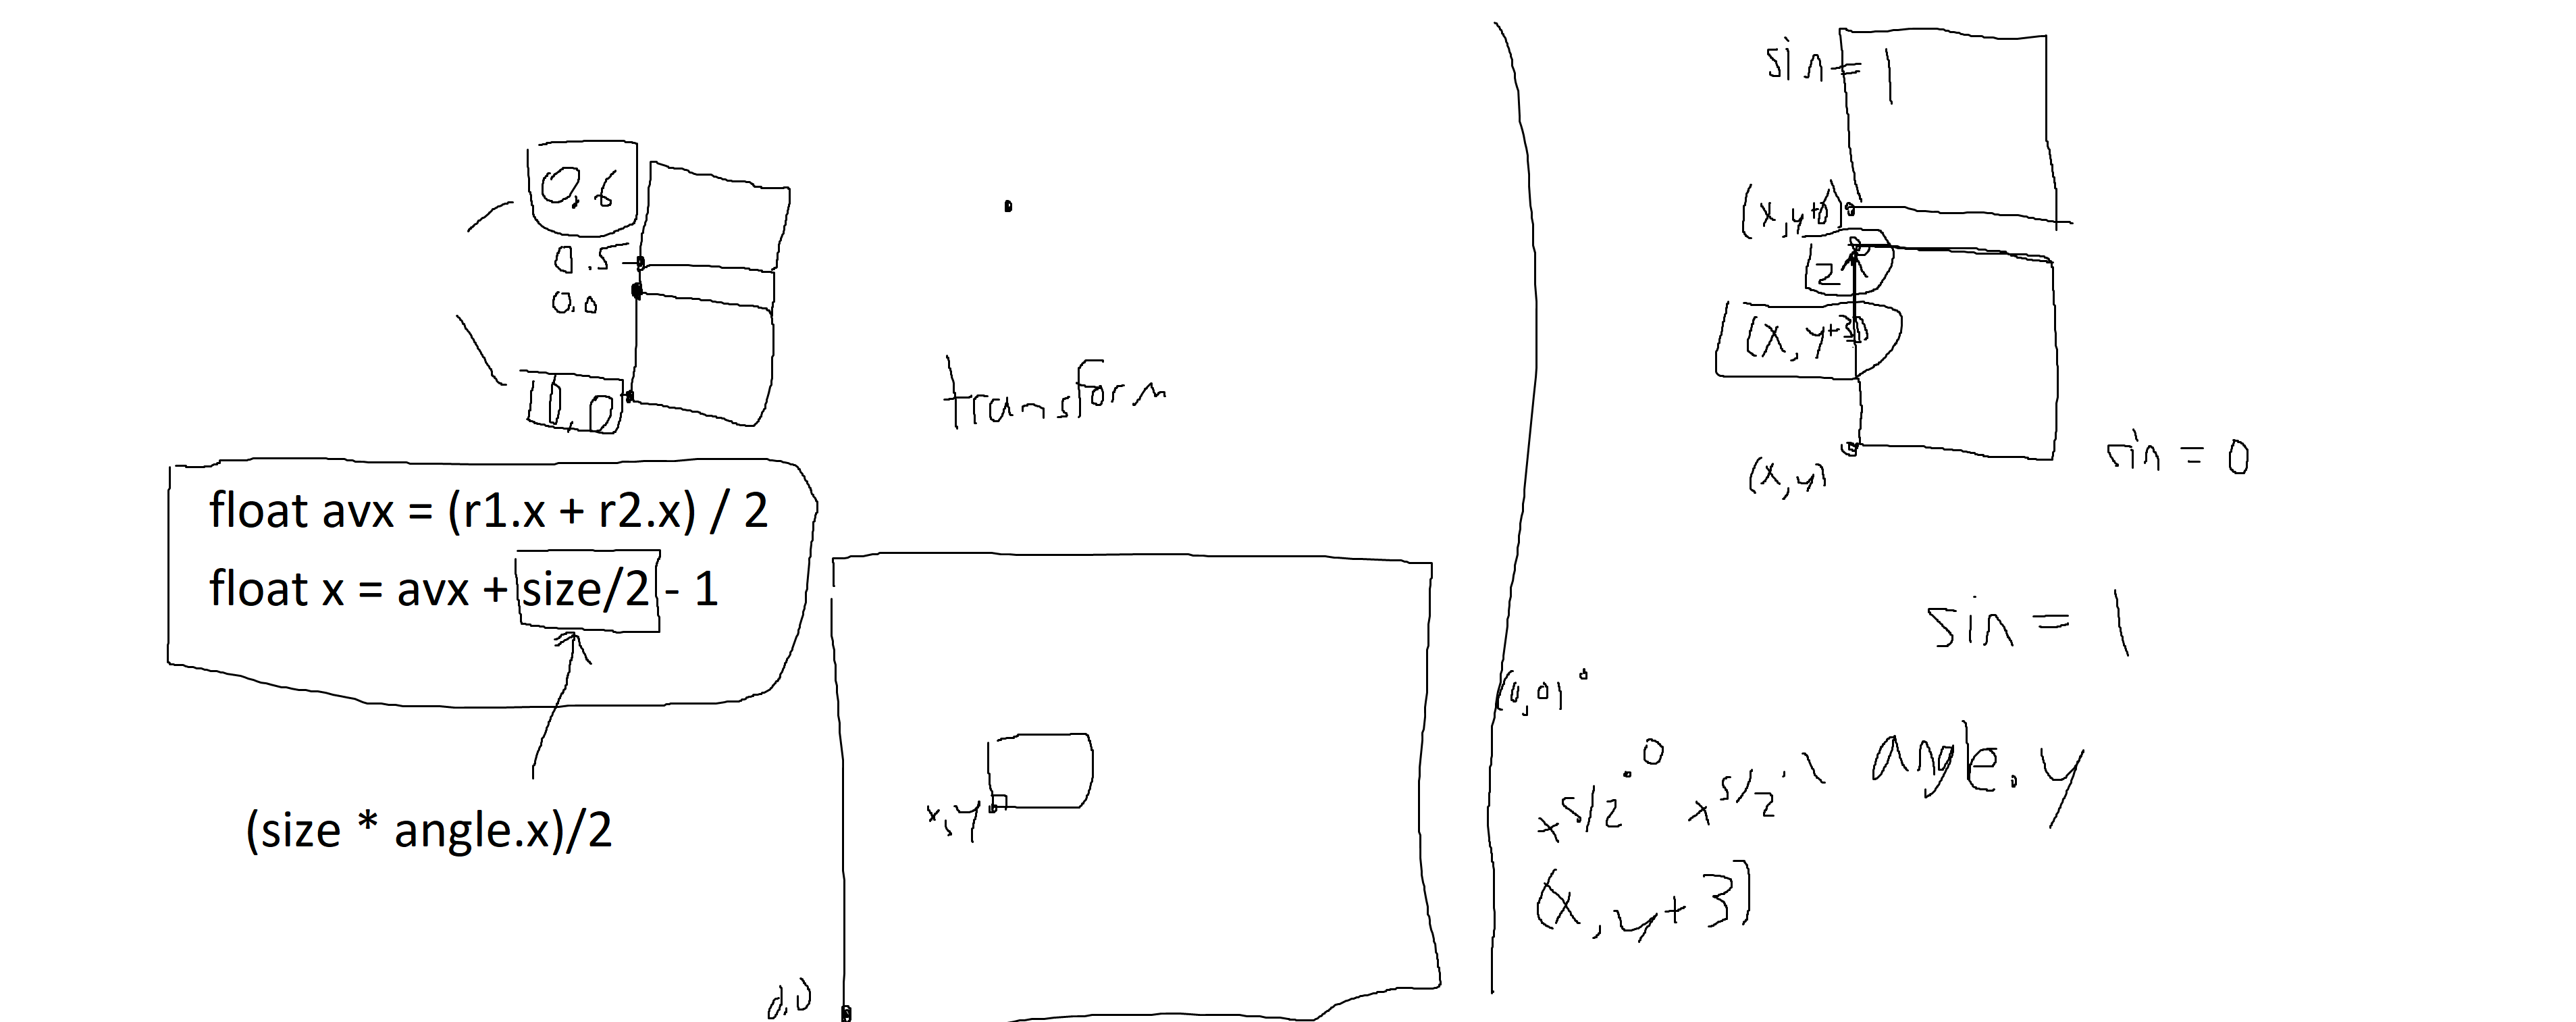 0.6
0.5
0.0
transform
float avx = (r1.x + r2.x) / 2
float x = avx + size/2 - 1
(size * angle.x)/2
x,y
0,0
sin = 1
2
(x, y+3)
(x,y)
sin = 0
sin = 1
(0,0)
angle.y
(x, y+3)